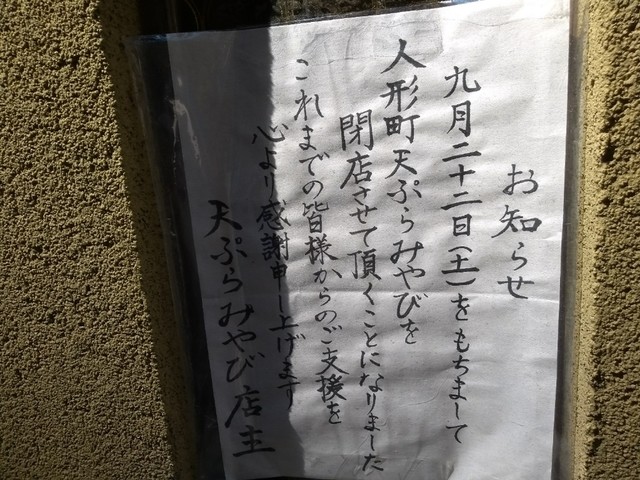 お知らせ
九月二十二日(土)をもちまして
人形町天ぷらみやびを
閉店させて頂くことになりました
これまでの皆様からのご支援を
心より感謝申し上げます
天ぷらみやび店主